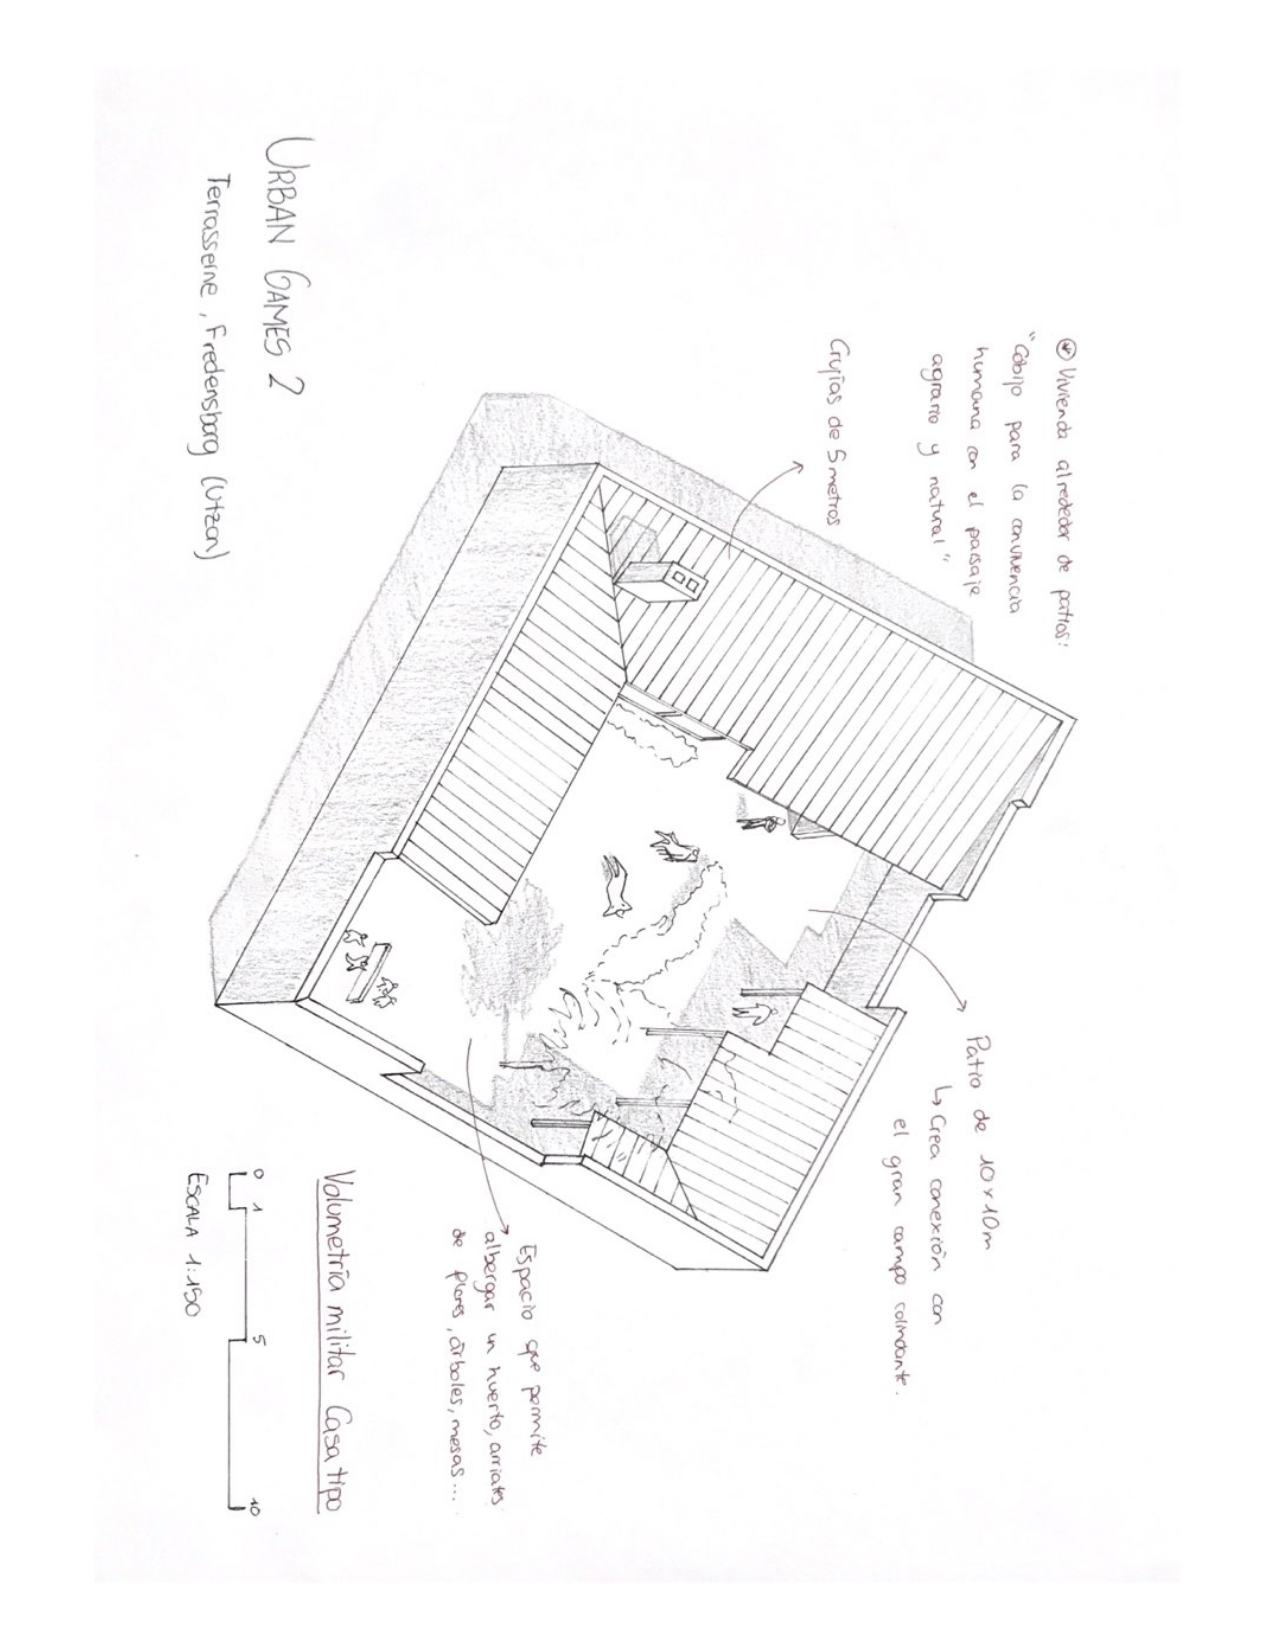 URBAN GAMES 2
Terrasserne, Fredensborg (Utzon)
* Vivienda alrededor de patios:
"Cobijo para la convivencia
humana con el paisaje
agrario y natural"
Crujías de 5 metros
Patio de 10x10m
↳ Crea conexión con
el gran campo colindante.
Espacio que permite
albergar un huerto, arriates
de flores, árboles, mesas...
Volumetría militar Casa tipo
0 1 5 10
ESCALA 1:150